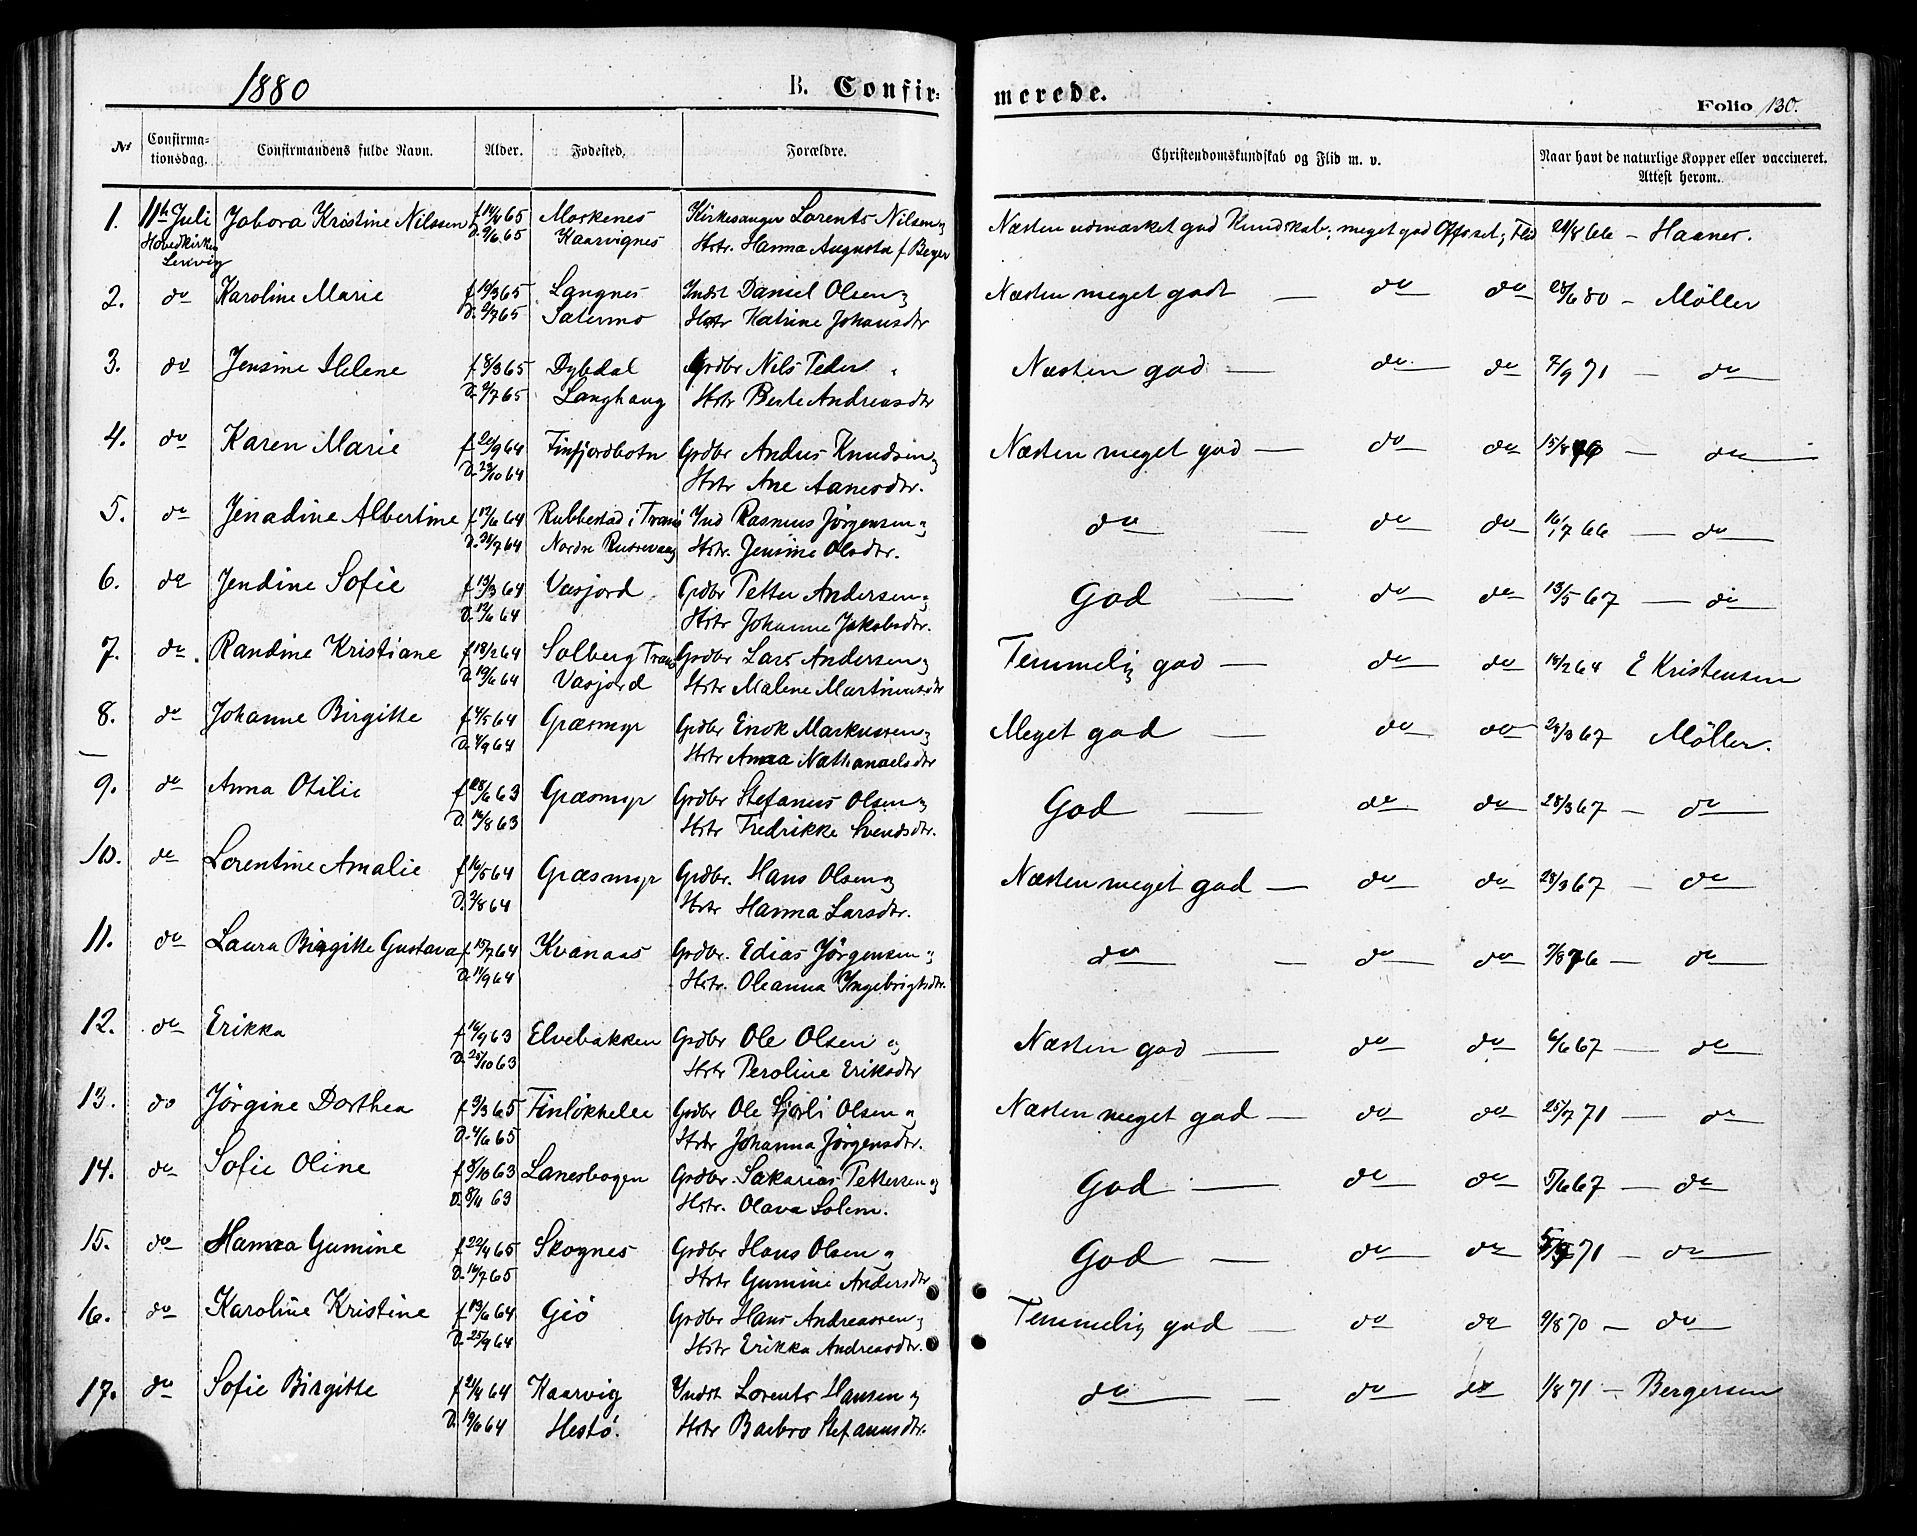 1880
B. Confir-
merede.
Folio 130.
No
Confirma-
tionsdag.
Confirmandens fulde Navn.
Alder.
Fødested.
Forældre.
Christendomskundskab og Flid m. v.
Naar havt de naturlige Kopper eller vaccineret.
Attest herom.
1. 11te Juli Jabora Kristine Nilssen f 65 Moskenes Kirkesanger Lorents Nilsen og Næsten udmærket god Kundskab; meget god Opførsel, Flid 21/8 66 - Haaner.
Hovedkirken D. 9/6 65 Kaarvignes Hstr. Hanna Augusta f Beyer
Lenvig
2. do Karoline Marie f 14/3 65 Langnes Indst Daniel Olsen og Næsten meget godt — do do 28/6 80 - Möller
D. 2/7 65 Hstr Katrine Johansdtr
3. do Jensine Helene f 8/3 65 Dybdal Grdbr Nils Peder Næsten god — do do 7/9 71 — do
D. 2/7 65 Langhaug Hstr Berte Andreasdtr
4. do Karen Marie f 20/9 64 Finfjordbotn Grdbr Anders Knudsen og Næsten meget god — do do 15/8 — do
D. 29/10 64 Hstr Ane Aanesdtr.
5. do Jenadine Albertine f 12/6 64 Rubbestad i Tranö Ind Rasmus Jörgensen og do — do do 16/7 66 — do
D. 24/7 64 Nordre Hstr. Jensine Olsdtr.
6. do Jendine Sofie f 13/3 64 Vasjord Grdbr Petter Andersen og God — do do 13/5 67 — do
D. 12/6 64 Hstr Johanne Jakobsdtr.
7. do. Randine Kristiane f 18/2 64 Solberg Tranö Grdbr Lars Andersen og Temmelig god — do do 18/2 64 E Kristensen
D. 19/6 64 Vasjord Hstr Malene Martinusdtr
8. do Johanne Birgitte f 4/5 64 Græsmyr Grdbr Enok Markussen og Meget god — do do 28/3 67 Möller.
D. 4/9 64 Hstr Anna Nathanaelsdtr
9. do Anna Otilie f 28/6 63 Græsmyr Grdbr Stefanus Olsen og God — do do 28/3 67 — do
D. 16/8 63 Hstr Fredrikke Svendsdtr.
10. do Lorentine Amalie f 16/5 64 Græsmyr Grdbr. Hans Olsen og Næsten meget god — do do 28/3 67 — do
D. 7/8 64 Hstr Hanna Larsdtr.
11. do Laura Birgitte Gustava f 15/7 64 Kvanaas Grdbr. Edias Jörgensen og do — do do 7/8 76 — do
D. 11/9 64 Hstr. Oleanna Ingebrigtsdtr.
12. do Erikka f 16/9 63 Elvebakken Grdbr Ole Olsen og Næsten god — do do 6/6 67 — do
D. 25/10 63 Hstr Peroline Eriksdtr
13. do Jörgine Dorthea f 9/3 65 Grdbr Ole Olsen og Næsten meget god — do do 25/7 71 — do
D. 4/6 65 Hstr Johanna Jörgensdtr.
14. do Sofie Oline f 8/10 63 Lanesbogen Grdbr. Sakarias Pettersen og God — do do 5/6 67 — do
D. 8/11 63 Hstr. Olava Solem.
15. do Hanna Gumine f 22/4 65 Skognes Grdbr Hans Olsen og God — do do 71 — do
D. 16/7 65 Hstr Gumine Andersdtr
16. do Karoline Kristine f 13/6 64 Giö Grdbr Hans Andreassen og Temmelig god — do do 9/8 70 — do
D. 25/9 64 Hstr Erikka Andreasdtr.
17. do Sofie Birgitte f 21/4 64 Kaarvig Indst Lorents Hansen og do — do do 1/8 71 — Bergersen
D. 19/6 64 Hestö. Hstr Barbro Stefanusdtr.